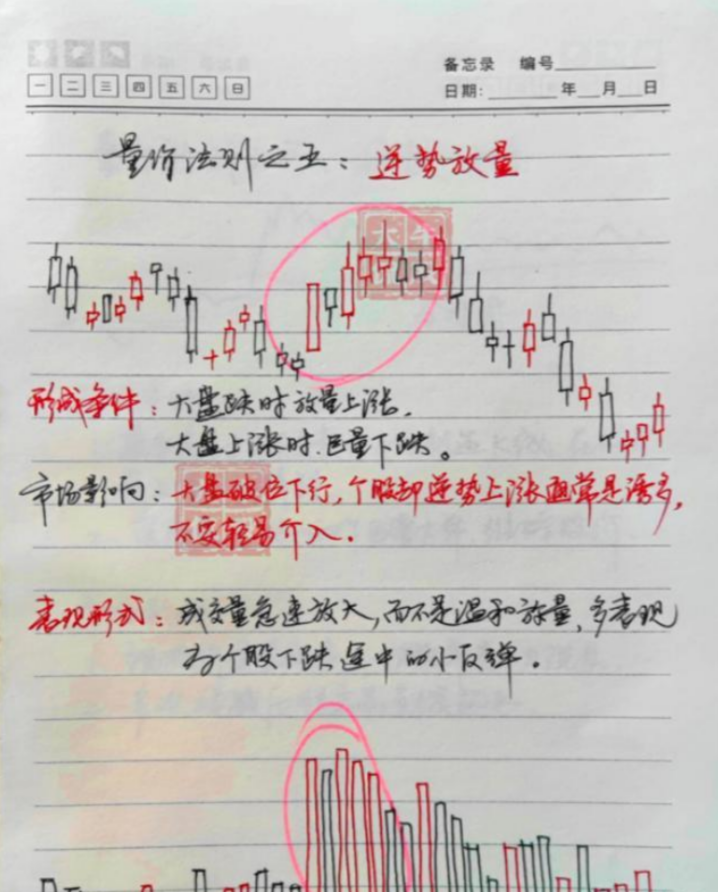 备忘录 编号
一 二 三 四 五 六 日
日期: 年 月 日
量价法则之五：逆势放量
形成条件：大盘跌时放量上涨，
大盘上涨时巨量下跌。
市场影响：大盘破位下行，个股却逆势上涨通常是诱多，
不要轻易介入．
表现形式：成交量急速放大，而不是温和放量，多表现
为个股下跌途中的小反弹。